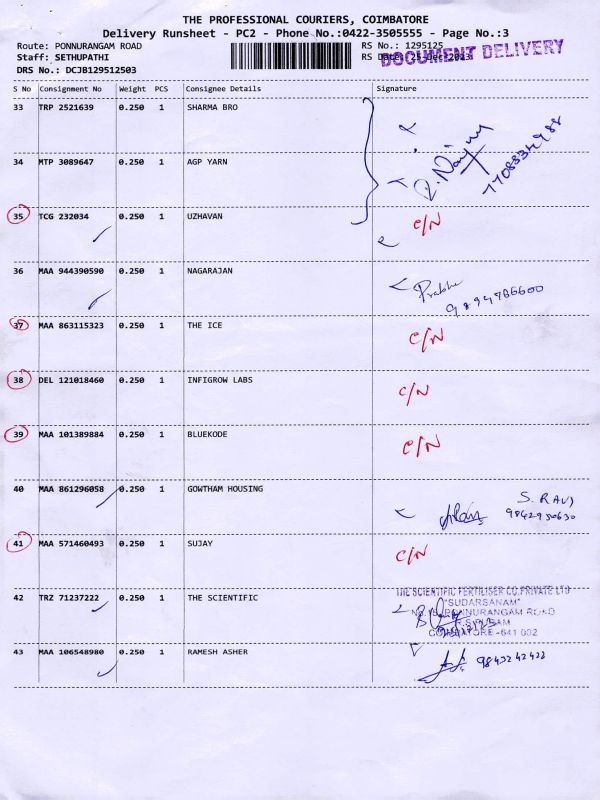 THE PROFESSIONAL COURIERS, COIMBATORE
Delivery Runsheet - PC2 - Phone No.:0422-3505555 - Page No.:3
Route: PONNURANGAM ROAD RS No.: 1295125
Staff: SETHUPATHI RS Date: 25-Dec-2023
DOCUMENT DELIVERY
DRS No.: DCJB129512503
S No Consignment No Weight PCS Consignee Details Signature
33 TRP 2521639 0.250 1 SHARMA BRO
7708834988
34 MTP 3089647 0.250 1 AGP YARN
35 TCG 232034 0.250 1 UZHAVAN C/N
36 MAA 944390590 0.250 1 NAGARAJAN Prabhu
9894786600
37 MAA 863115323 0.250 1 THE ICE C/N
38 DEL 121018460 0.250 1 INFIGROW LABS C/N
39 MAA 101389884 0.250 1 BLUEKODE C/N
40 MAA 861296058 0.250 1 GOWTHAM HOUSING S. RAVI
9842950630
41 MAA 571460493 0.250 1 SUJAY C/N
THE SCIENTIFIC FERTILISER CO.PRIVATE LTD
42 TRZ 71237222 0.250 1 THE SCIENTIFIC "SUDARSANAM"
PONNURANGAM ROAD
COIMBATORE -641 002
43 MAA 106548980 0.250 1 RAMESH ASHER 9843242428